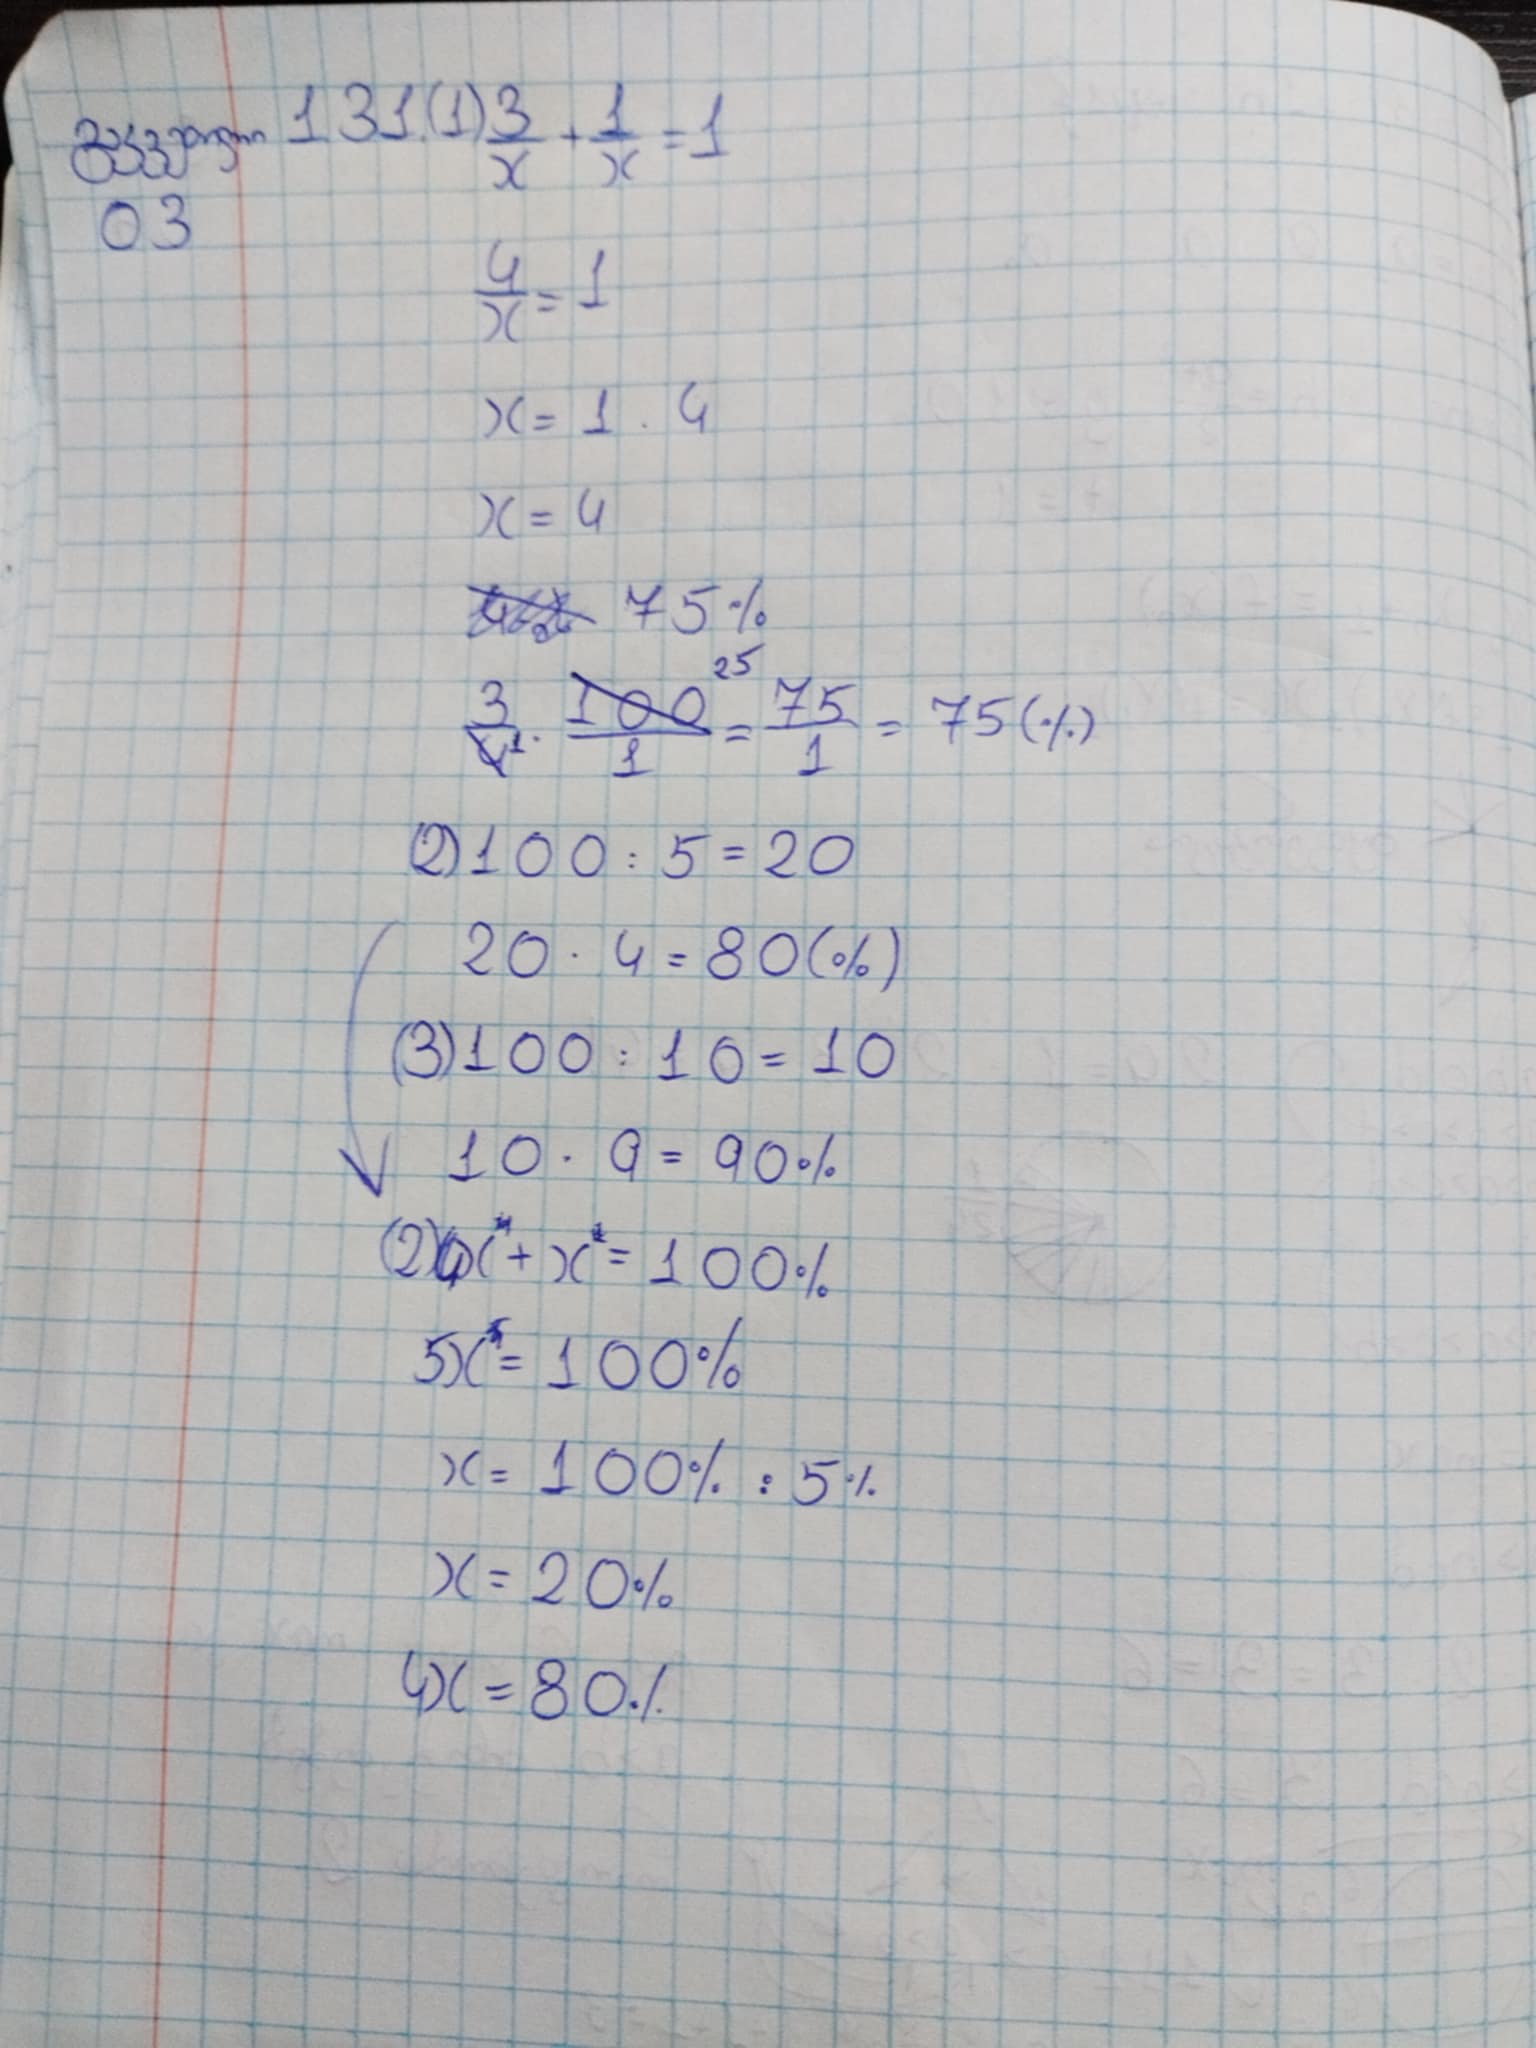 131.(1) 3/x + 1/x = 1
03
4/x = 1
x = 1 · 4
x = 4
75%
3/4 1 · 100/1 25 = 75/1 = 75(%)
(2) 100 : 5 = 20
20 · 4 = 80(%)
(3) 100 : 10 = 10
10 · 9 = 90%
(2) 4x + x = 100%
5x = 100%
x = 100% : 5%
x = 20%
4x = 80%